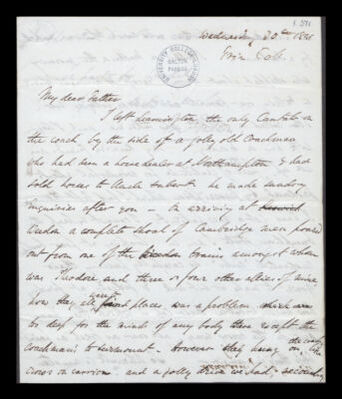 Wednesday 30th
Trin. Coll.
UNIVERSITY COLLEGE LONDON
GALTON
PAPERS
My dear Father
I left Leamington the only Cantab on
the coach by the side of a jolly old Coachman
who had been a horse dealer at Northampton & had
sold horses to Uncle Hubert he made sundry
inquiries after you – On arriving at
Weedon a complete shoal of Cambridge men poured
out from one of the trains amongst whom
was Theodore and three or four other allies of mine
how they all found places was a problem which
be deep for the minds of any body except the
coachman's to surmount – However they hung on the coach like
crows on carrion and a jolly drive we had,